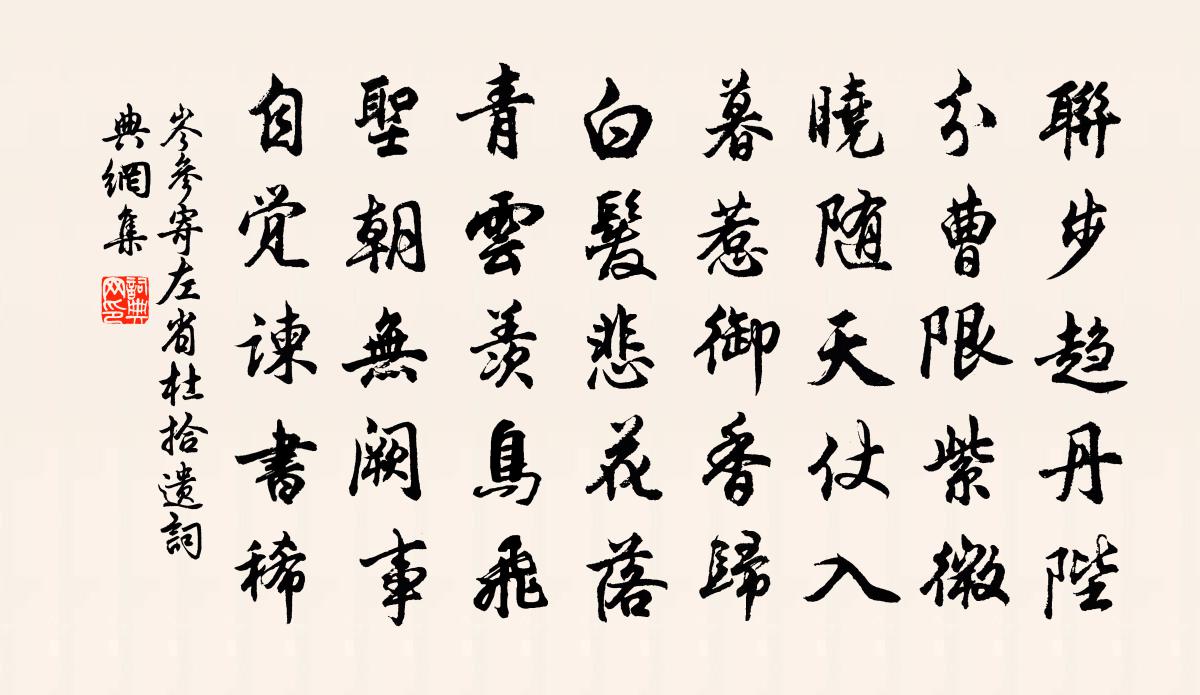 聯步趋丹陛
分曹限紫微
曉随天仗入
暮惹御香歸
白髮悲花落
青雲羨鳥飛
聖朝無阙事
自觉諫書稀
岑參寄左省杜拾遺詞
典網集
詞典网印